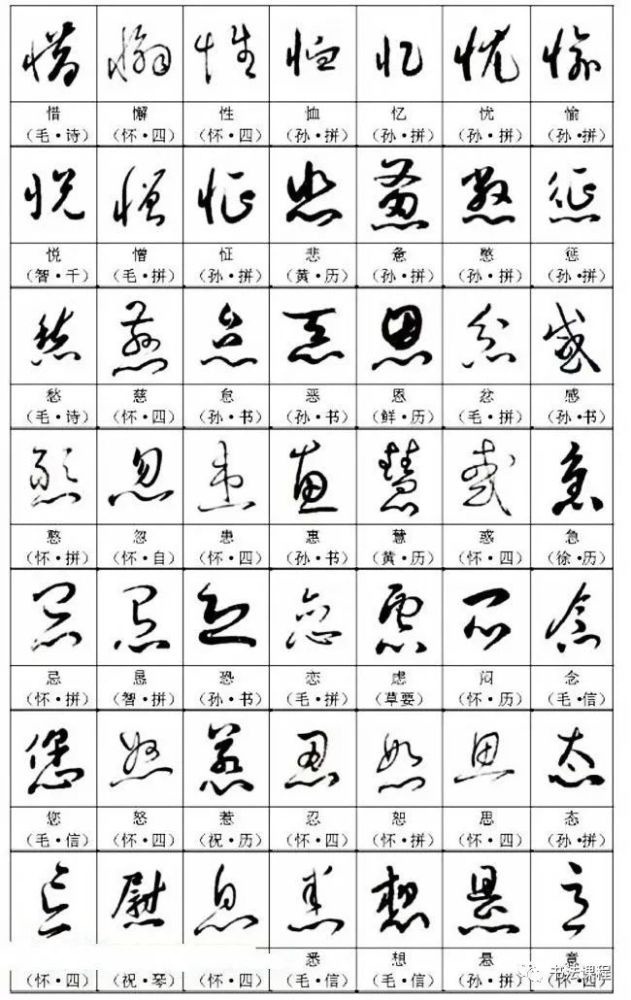 惜 懈 性 恤 忆 忧 愉
（毛·诗） （怀·四） （怀·四） （孙·拼） （孙·拼） （孙·拼） （孙·拼）
悦 憎 怔 悲 惫 憋 惩
（智·千） （毛·拼） （孙·拼） （黄·历） （孙·拼） （孙·拼） （孙·拼）
愁 慈 怠 恶 恩 忿 感
（毛·诗） （怀·四） （孙·书） （孙·书） （鲜·历） （毛·拼） （孙·书）
憨 忽 患 惠 慧 惑 急
（怀·拼） （怀·自） （怀·四） （孙·书） （黄·历） （怀·四） （徐·历）
忌 恳 恐 恋 虑 闷 念
（怀·拼） （智·拼） （孙·书） （毛·拼） （草要） （怀·历） （毛·信）
您 怒 惹 忍 恕 思 态
（毛·信） （怀·四） （祝·历） （怀·四） （怀·拼） （怀·四） （孙·拼）
悉 想 悬 意
（怀·四） （祝·琴） （怀·四） （毛·信） （毛·信） （孙·拼） （怀·四）
书法课程